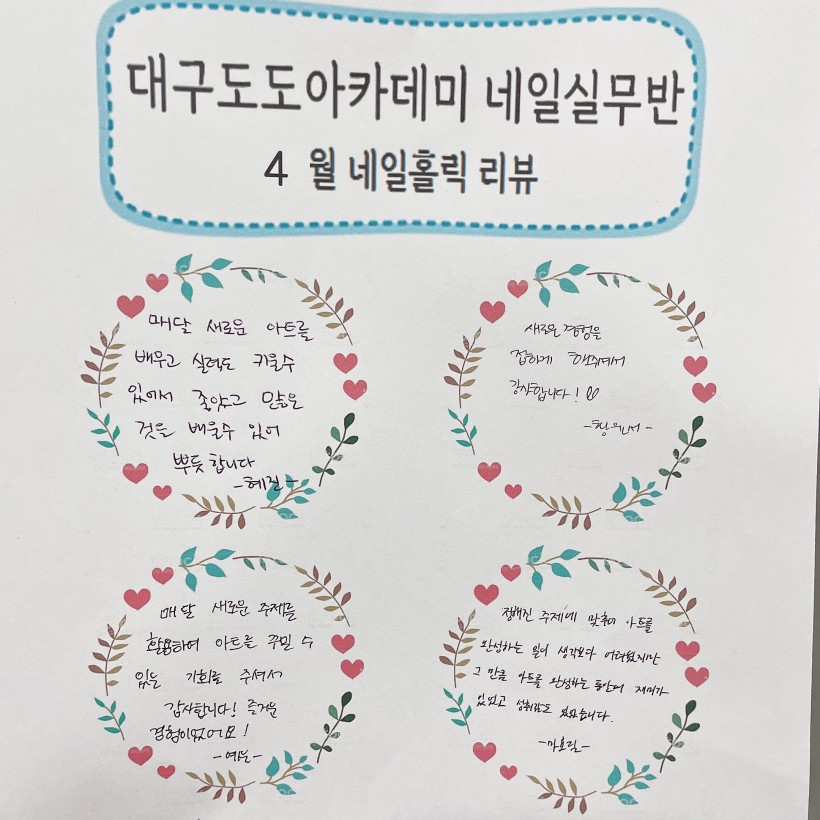 대구도도아카데미 네일실무반
4 월 네일홀릭 리뷰
매달 새로운 아트를
배우고 실력도 키울수
있어서 좋았고 많은
것을 배울수 있어
뿌듯합니다
-혜진-
새로운 경험을
접하게 해주셔서
감사합니다!
매달 새로운 주제를
활용하여 아트를 꾸밀 수
있는 기회를 주셔서
감사합니다! 즐거운
경험이었어요!
-예은-
정해진 주제에 맞춰 아트를
완성하는 일이 생각보다 어려웠지만
그 만큼 아트를 완성하는 동안에 재미가
있었고 성취감도 있었습니다.